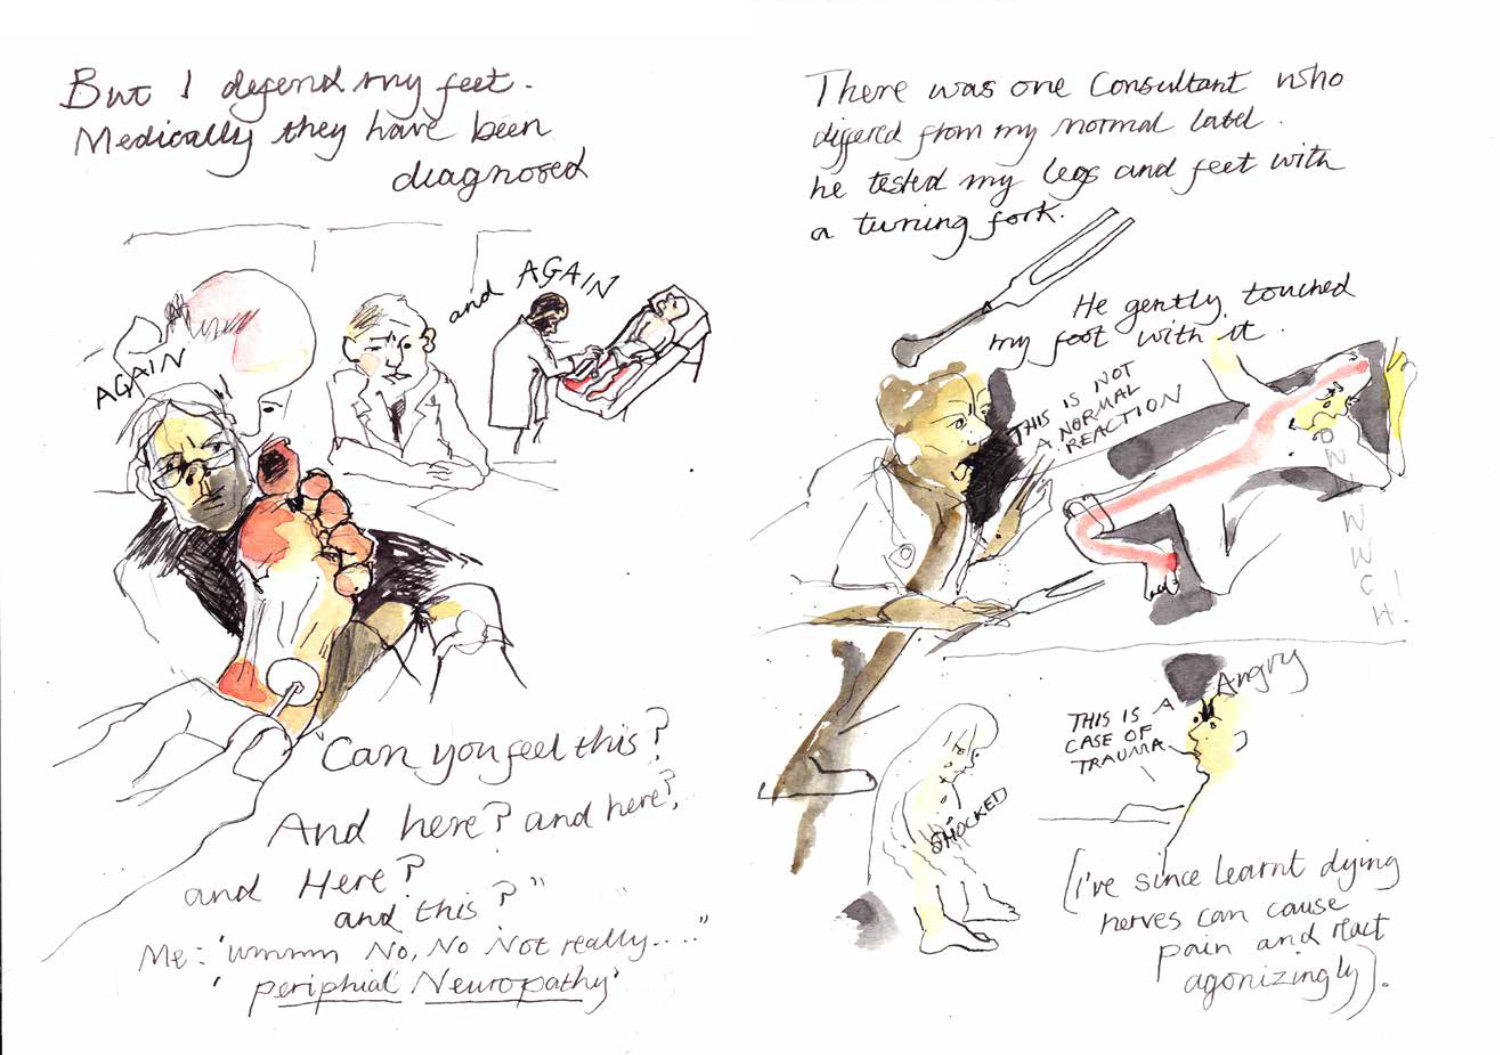 But I defend my feet.
Medically they have been
diagnosed
AGAIN
and AGAIN
"Can you feel this?
And here? and here?,
and Here?
and this?"
Me: 'ummm No, No Not really...."
'periphial Neuropathy'
There was one Consultant who
differed from my normal label.
he tested my legs and feet with
a turning fork.
He gently touched
my foot with it.
THIS IS NOT
A NORMAL
REACTION
OWWWWCH!
SHOCKED
Angry
THIS IS A
CASE OF
TRAUMA
(I've since learnt dying
nerves can cause
pain and react
agonizingly).